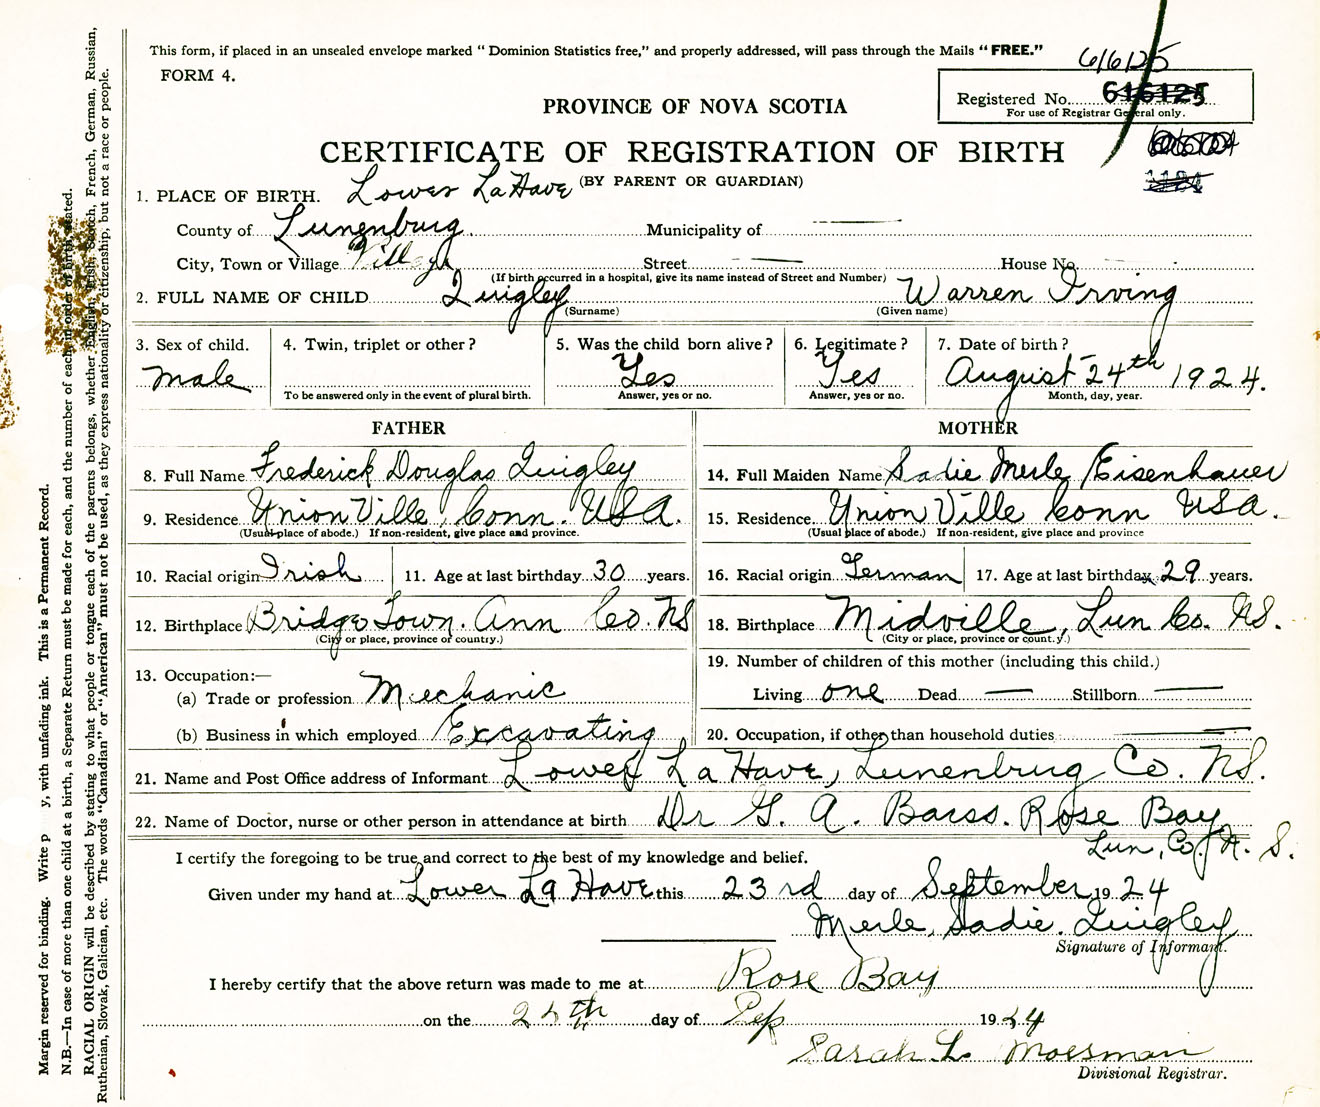 This form, if placed in an unsealed envelope marked “ Dominion Statistics free,” and properly addressed, will pass through the Mails “ FREE.”
616125
FORM 4.
Registered No. 616125
For use of Registrar General only.
PROVINCE OF NOVA SCOTIA
CERTIFICATE OF REGISTRATION OF BIRTH
(BY PARENT OR GUARDIAN)
1. PLACE OF BIRTH. Lower LaHave
County of Lunenburg. Municipality of
City, Town or Village Village Street House No.
(If birth occurred in a hospital, give its name instead of Street and Number)
2. FULL NAME OF CHILD Quigley Warren Irving
(Surname) (Given name)
3. Sex of child. 4. Twin, triplet or other ? 5. Was the child born alive ? 6. Legitimate ? 7. Date of birth ?
male Yes Yes August 24th 1924.
To be answered only in the event of plural birth. Answer, yes or no. Answer, yes or no. Month, day, year.
FATHER MOTHER
8. Full Name Frederick Douglas Quigley 14. Full Maiden Name Sadie Merle Eisenhauer
9. Residence Union Ville, Conn. USA. 15. Residence. Union Ville Conn USA.
(Usual place of abode.) If non-resident, give place and province. (Usual place of abode.) If non-resident, give place and province
10. Racial origin Irish 11. Age at last birthday 30 years. 16. Racial origin German 17. Age at last birthday 29 years.
12. Birthplace Bridge Town. Ann Co. NS 18. Birthplace Midville, Lun Co. NS.
(City or place, province or country.) (City or place, province or count.y.)
13. Occupation:— 19. Number of children of this mother (including this child.)
(a) Trade or profession Mechanic Living one Dead — Stillborn —
(b) Business in which employed Excavating 20. Occupation, if other than household duties
21. Name and Post Office address of Informant Lower La Have, Lunenburg Co. NS.
22. Name of Doctor, nurse or other person in attendance at birth Dr G. A. Barss. Rose Bay
Lun, Co, N. S.
I certify the foregoing to be true and correct to the best of my knowledge and belief.
Given under my hand at Lower La Have this 23rd day of September 1924
Merle, Sadie. Quigley
Signature of Informant.
I hereby certify that the above return was made to me at Rose Bay
on the day of Sep 1924
Sarah L. Mossman
Divisional Registrar.
Margin reserved for binding. Write p y, with unfading ink. This is a Permanent Record.
N.B.—In case of more than one child at a birth, a Separate Return must be made for each, and the number of each in order of birth stated.
RACIAL ORIGIN will be described by stating to what people or tongue each of the parents belongs, whether English, Irish, Scotch, French, German, Russian,
Ruthenian, Slovak, Galician, etc. The words “Canadian” or “American” must not be used, as they express nationality or citizenship, but not a race or people.